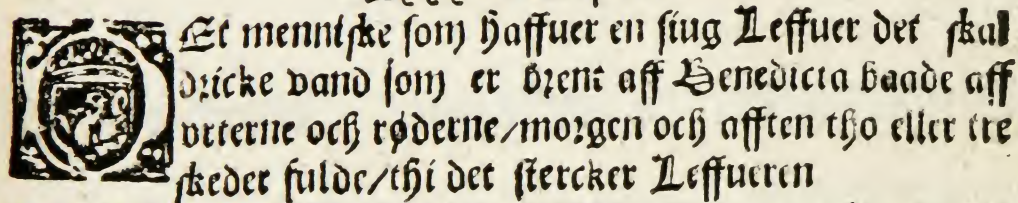 DEt menniſke ſom haffuer en ſiug Leffuer det ſkal
dricke vand ſom er brent aff Benedicta baade aff
vrterne och røderne/morgen och afften tho eller tre
ſkeder fulde/thi det ſtercker Leffueren